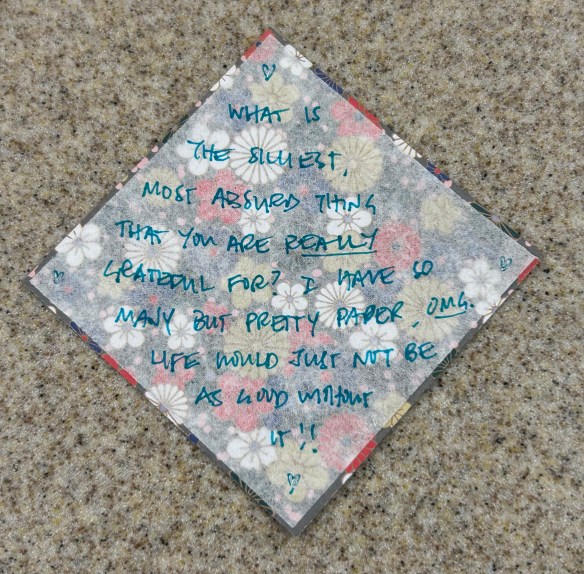 WHAT IS
THE SILLIEST,
MOST ABSURD THING
THAT YOU ARE REALLY
GRATEFUL FOR? I HAVE SO
MANY BUT PRETTY PAPER, OMG.
LIFE WOULD JUST NOT BE
AS GOOD WITHOUT
IT!!